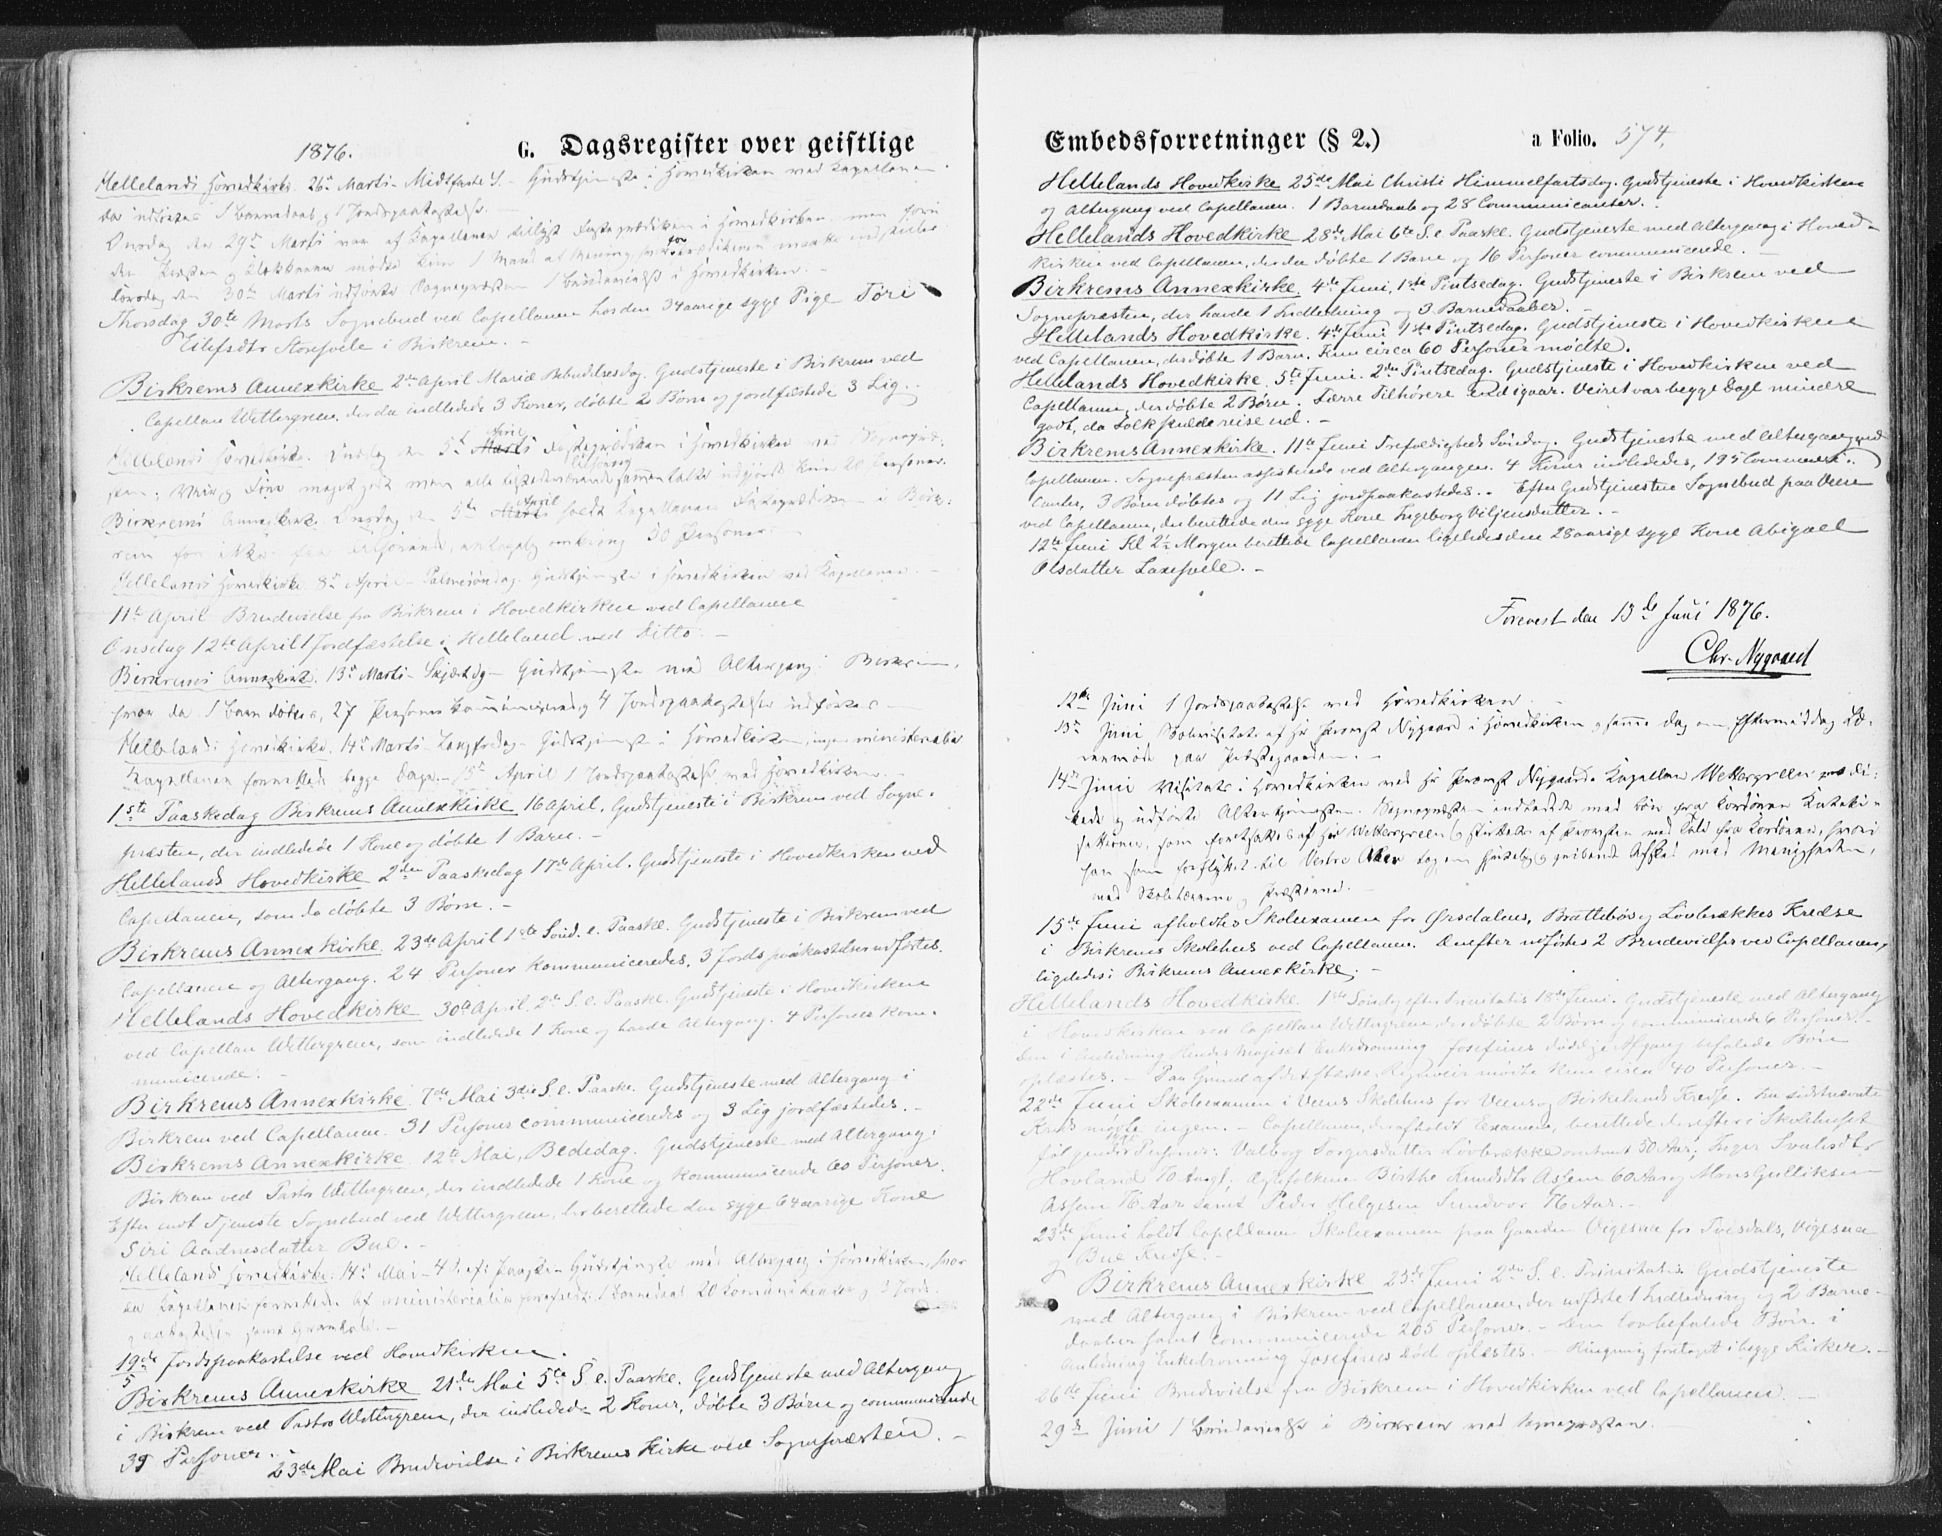 1876.
G. Dagsregister over geistlige
Hellelands Hovedkirke. 26de Marts. Midfaste S. Gudstjeneste i Hovedkirken ved Kapellanen
da udførtes 1 Barnedaab og 1 Jordspaakastelse.
Onsdag den 29de Marts var af Kapellanen Fasteprædiken i Hovedkirken
den Præsten og Klokkeren mødte kun 1 Mand
30te Marts udførte Sognepræsten 1 Brudevielse i Hovedkirken. -
Thorsdag 30te Marts Sognebud ved Capellanen hos den 34aarige syge Pige Tóri
Eilefsdtr Storsveile i Birkrem. -
Birkrems Annexkirke 2den April Mariæ Bebudelsesdag. Gudstjeneste i Birkrem ved
Capellan Wettergreen, der da indledede 3 Koner, døbte 2 Børn og jordfæstede 3 Lig. -
Hellelands Hovedkirke. Onsdag den 5te April Fasteprædiken i Hovedkirken ved Sognepræ-
sten; men alle udgjorde kun 20 Personer.
Birkrems Annexkirke Onsdag den 5te April holdt Kapellanen Fasteprædiken i Birk-
rem for omkring 30 Personer. -
Hellelands Hovedkirke 8de April - Palmesøndag. Gudstjeneste i Hovedkirken ved Kapellanen. -
11te April Brudevielse fra Birkrem i Hovedkirken ved Capellanen
Onsdag 12te April 1 Jordfæstelse i Helleland ved Ditto. -
Birkrems Annexkirke. 13de Marts - Skjærtsdg - Gudstjeneste med Altergang i Birkrem,
hvor da 1 Barn døbtes, 27 Personer kommunicerede og 4 Jordspaakastelser udførtes -
Hellelands Hovedkirke. 14de Marts - Langfredag - Gudstjeneste i Hovedkirken, ingen ministerialia
Kapellanen forrettede begge Dage. - 15de April 1 Jordspaakastelse ved Hovedkirken. -
1ste Paaskedag Birkrems Annexkirke 16 April. Gudstjeneste i Birkrem ved Sogne-
præsten, der indledede 1 Kone og døbte 1 Barn. -
Hellelands Hovedkirke 2den Paaskedag 17de April. Gudstjeneste i Hovedkirken ved
Capellanen, som da døbte 3 Børn. -
Birkrems Annexkirke 23de April 1ste Sønd. e. Paaske. Gudstjeneste i Birkrem ved
Capellanen og Altergang. 24 Personer kommuniceredes. 3 Jordspaakastelser udførtes.
Hellelands Hovedkirke 30te April 2de S. e. Paaske. Gudstjeneste i Hovedkirken
ved Capellan Wettergreen, som indledede 1 Kone og havde Altergang. 4 Personer kom-
municerede. -
Birkrems Annexkirke 7de Mai 3die S. e. Paaske. Gudstjeneste med Altergang i
Birkrem ved Capellanen. 31 Personer communiceredes og 3 Lig jordfæstedes. -
Birkrems Annexkirke 12te Mai, Bededag. Gudstjeneste med Altergang i
Birkrem ved Pastor Wettergreen, der indledede 1 Kone og kommunicerede 60 Personer.
Efter endt Tjeneste Sognebud ved Wettergreen, der berettede den syge 64aarige Kone
Siri Aadnesdatter Bue. -
Hellelands Hovedkirke. 14de Mai - 4 S. ef: Paaske - Gudstjeneste med Altergang i Hovedkirken, hvor
da Kapellanen forrettede. Af ministerialia 1 Barnedaab 20 Kommunikanter og 3 Jords-
paakastelser
19de/5 Jordspaakastelse ved Hovedkirken.
Birkrems Annexkirke 21de Mai 5te S. e. Paaske. Gudstjeneste med Altergang
i Birkrem ved Pastor Wettergreen, der indledede 2 Koner, døbte 3 Børn og communicerede
39 Personer. -
23de Mai Brudevielse i Birkrems Kirke ved Sognepræsten. -
Embedsforretninger (§ 2.)
a Folio. 574.
Hellelands Hovedkirke 25de Mai Christi Himmelfartsdag. Gudstjeneste i Hovedkirken
og Altergang ved Capellanen. 1 Barnedaab og 28 Communicanter.
Hellelands Hovedkirke 28de Mai 6te S. e Paaske. Gudstjeneste med Altergang i Hoved-
kirken ved Capellanen, der da døbte 1 Barn og 16 Personer communicerede. -
Birkrems Annexkirke. 4de Juni, 1ste Pintsedag. Gudstjeneste i Birkrem ved
Sognepræsten, der havde 1 Indledning og 3 Barnedaaber. -
Hellelands Hovedkirke. 4de Juni 1ste Pintsedag. Gudstjeneste i Hovedkirken
ved Capellanen, der døbte 1 Barn. Kun circa 60 Personer mødte.
Hellelands Hovedkirke. 5te Juni. 2den Pintsedag. Gudstjeneste i Hovedkirken ved
Capellanen, der døbte 2 Børn. Færre Tilhørere end igaar. Veiret var begge Dage mindre
godt, da Folk skulde reise ud. -
Birkrems Annexkirke. 11te Juni Trefoldigheds Søndag. Gudstjeneste med Altergang ved
Capellanen. Sognepræsten assisterede ved Altergangen. 4 Koner indlededes, 195 Communi-
canter, 3 Børn døbtes og 11 Lig jordpaakastedes. - Efter Gudstjenesten Sognebud paa Veen
ved Capellanen, der berettede den syge Kone Ingeborg Viljensdatter. -
12te Juni Kl 2½ Morgen berettede Capellanen ligeledes den 28aarige syge Kone Abigael
Olsdatter Laxesveile. -
Forevist den 13de Juni 1876.
Chr. Nygaard
12te Juni 1 Jordspaakastelse ved Hovedkirken. -
13de Juni af Hr Provst Nygaard i Hovedkirken og samme Dag om Eftermiddag Læ-
rermøde paa Præstegaarden. -
14de Juni Visitats i Hovedkirken ved Hr Provst Nygaard. Kapellan Wettergreen prædi-
kede og udførte Altertjenesten. Sognepræsten indledede med Bøn fra Kordøren Kateki-
sationen, som fortsattes af Hr Wettergreen og sluttedes af Provsten med Tale fra Kordøren, hvori
han som forflyttet til Vestre Aker tog en hjertelig og gribende Afsked med Menigheden,
med Skolelærerne og Præsterne. -
15de Juni afholdtes Skoleexamen for Ørsdalens, Brattebøs og Løvbrækkes Kredse
i Birkrems Skolehus ved Capellanen. Derefter udførtes 2 Brudevielser ved Capellanen,
ligeledes i Birkrems Annexkirke. -
Hellelands Hovedkirke 1ste Søndg eft. Trinitatis 18de Juni. Gudstjeneste med Altergang
i Hovedkirken ved Capellan Wettergreen, der døbte 2 Børn og communicerede 6 Personer. -
Den i Anledning Hendes Majestæt Enkedronning Josefines dødelige Afgang befalede Bøn
oplæstes. - Paa Grund af det stærke Regnveir mødte kun circa 40 Personer. -
22de Juni Skoleexamen i Veens Skolehus for Veens og Birkelands Kredse. Fra sidstnævnte
Kreds mødte ingen. - Capellanen, der afholdt Examen, berettede derefter i Skolehuset
følgende syge Personer: Valborg Torgersdatter Løvbrække omtrent 50 Aar, Inger Svalesdtr
Hovland 70 Aar, Ægtefolkene Birthe Knudsdtr Assem 60 Aar og Mons Gulliksen
Assem 76 Aar samt Peder Helgesen Sundvor 76 Aar. -
23de Juni holdt Capellanen Skoleexamen paa Gaarden Vigesaa for Tvedals, Vigesaa
og Bue Kredse. -
Birkrems Annexkirke 25de Juni 2den S. e. Trinitatis. Gudstjeneste
med Altergang i Birkrem ved Capellanen, der udførte 1 Indledning og 2 Barne-
daaber samt communicerede 205 Personer. - Den lovbefalede Bøn i
Anledning Enkedronning Josefines Død oplæstes. - Ringning foretaget i begge Kirker. -
26de Juni Brudevielse fra Birkrem i Hovedkirken ved Capellanen. -
29de Juni 1 Brudevielse i Birkrem ved Sognepræsten. -